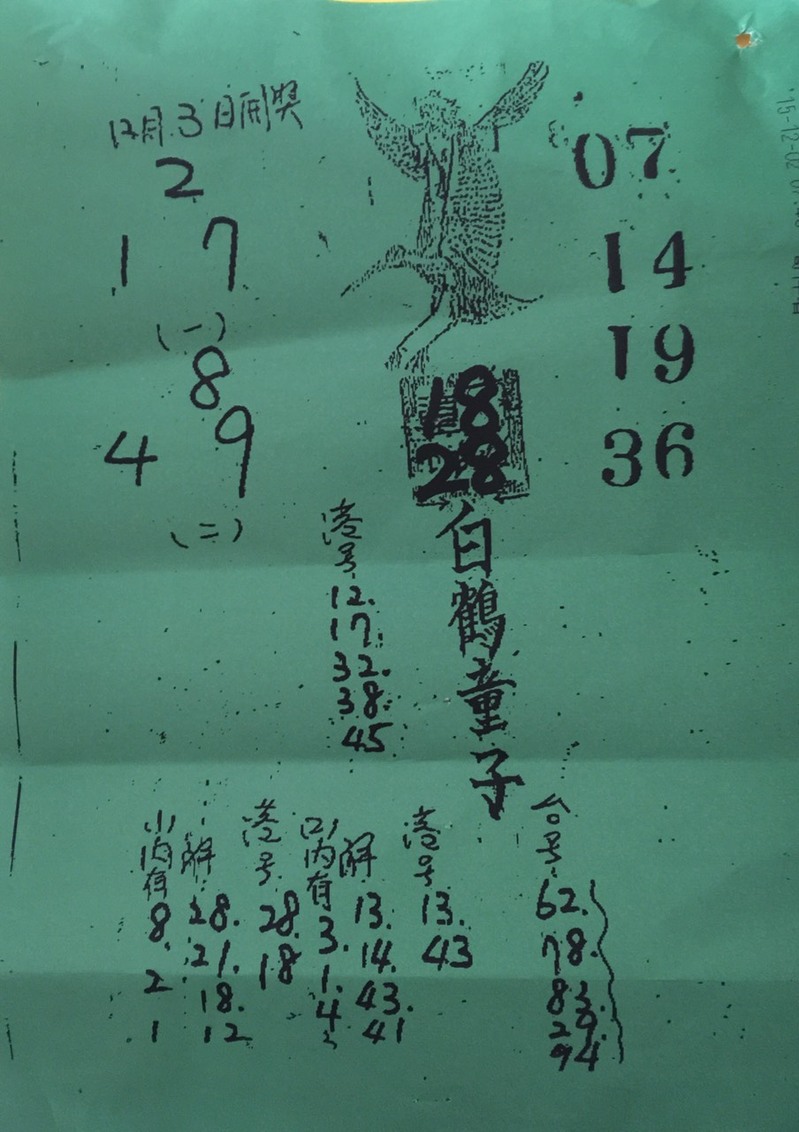 12月3日開獎
2
1 7
(一)
8
4 9
(二)
07
14
19
36
18
28
白鶴童子
港号
12.
17.
32.
38.
45
(1)内有
8.
2.
1
解
28.
21.
18.
12
港号
28.
18
(2)内有
3.
1.
4
解
13.
14.
43.
41
港号
13.
43
台号
62.
78.
83.
29.
94
'15-12-02